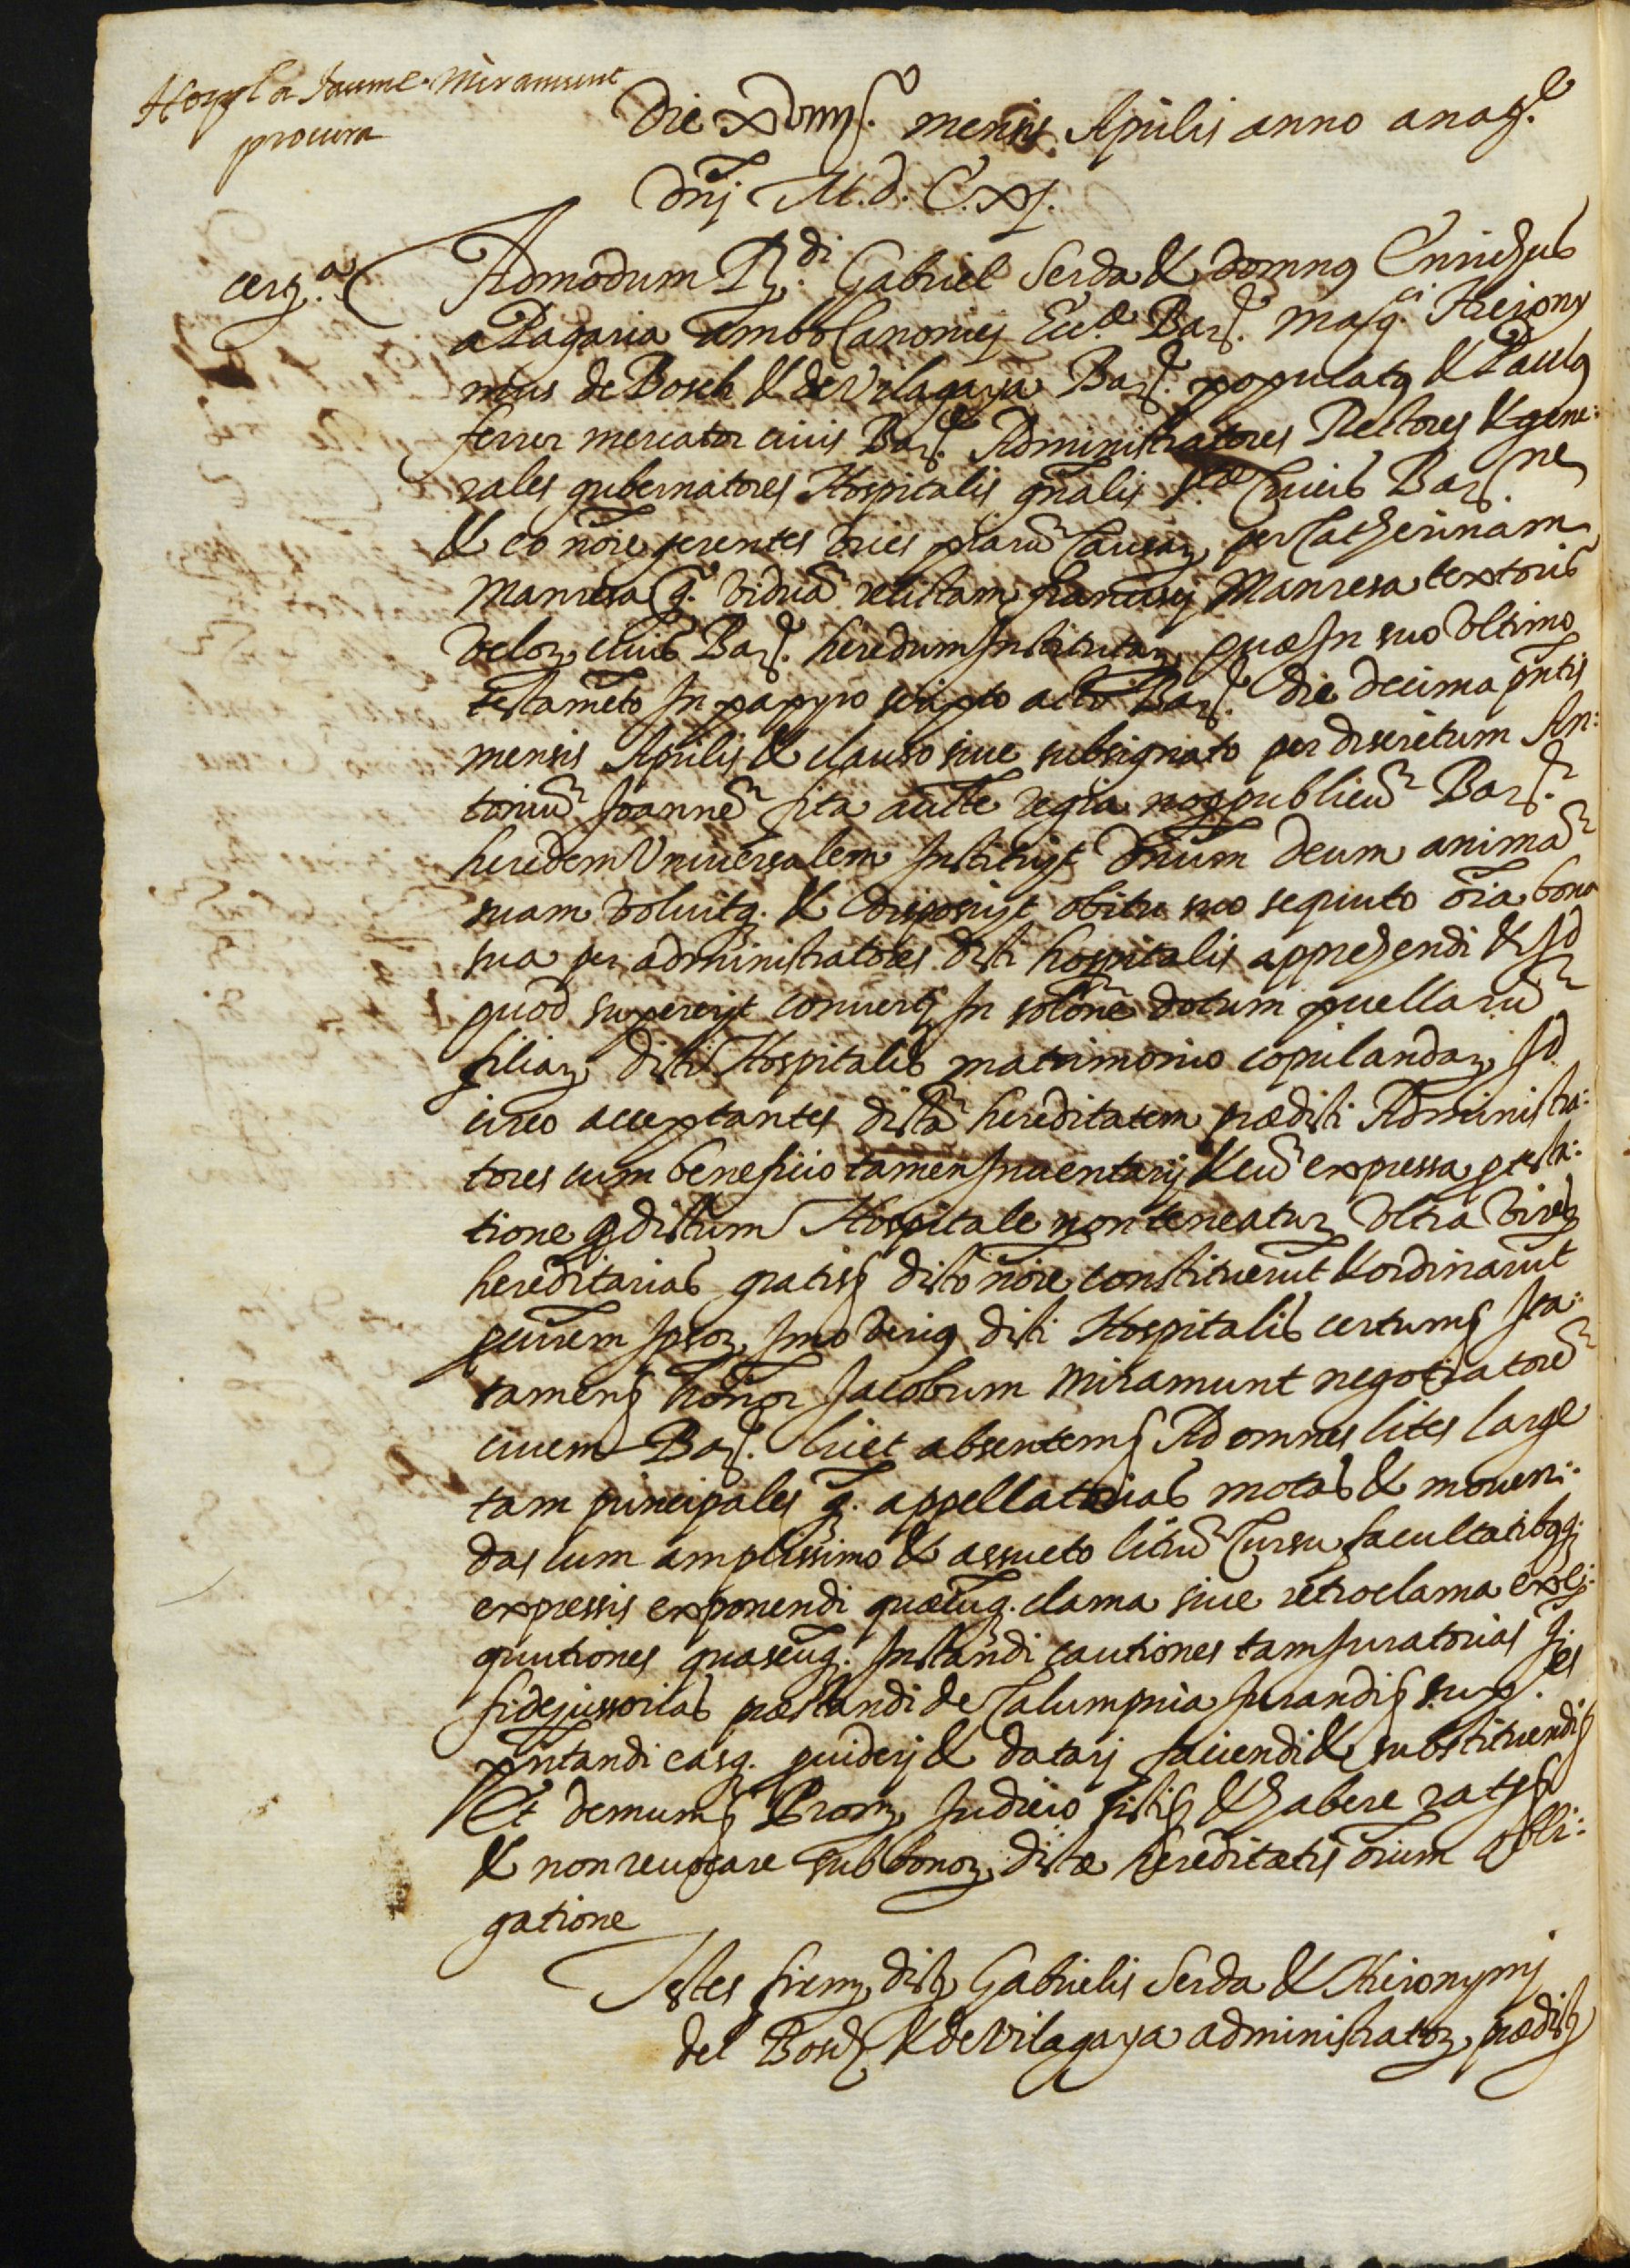 Hospl a Jaume Miramunt
procura
Die xviiij. mensis Aprilis anno a nat.e
Dnj M.d.C.xj.
Admodum R.di Gabriel Serda & domnus Enrichus
a Pagaria ambo Canonicj Ecc.ae Bar.e mag.ci Hierony
mus de Bosch & de Vilagaya Bar.e populatus & Paulus
ferrer mercator civis Bar.e Administratores Rectores & gene:
rales gubernatores Hospitalis gñalis s.tae Crucis Bar.ne
& eo noïe gerentes vices piarũ causarum per Catherinam
Manresa q.º viduã relictam franciscj Manresa textoris
velorum civis Bar.e heredum institutarum quae in suo vltimo
testamẽto in papyro scripto acto Bar.e die decima pñtis
mensis Aprilis & clauso siue subsignato per discretum An:
toniũ Joannẽ fita aucte regia not. publicũ Bar.e
heredem vniuersalem instituit dñum deum animã
suam voluitq. & disposuit obitu suo sequuto oïa bona
sua per administratores dicti hospitalis apprehendi & id
quod supererit converti in solõne dotum puellarũ
filiarum dicti Hospitalis matrimonio copulandarum id
circo acceptantes dictã hereditatem praedicti Administra:
tores cum beneficio tamen inventarij & cũ expressa protesta:
tione q dictum Hospitale non teneatur vltra vires
hereditarias gratis dicto noïe constituerũt & ordinarũt
procurem ipsorum imo verius dicti Hospitalis certum ita:
tamen honor Jacobum Miramunt negotiatorẽ
civem Bar.e licet absentem Ad omnes lites large
tam principales q. appellatorias motas & moven:
das cum amplissimo & assueto litiũ cursu facultatibusq;
expressis exponendi quaecũq. clama siue retroclama exe:
quutiones quascũq. instandi cautiones tam juratorias q;
fidejussorias praestandi de calumpnia jurandi sup.es
pñtandi easq. guiderij & datarj faciendi & substituendi
Et demum Prom. judicio sisti & habere rat
& non revocare sub bonorum dictae hereditatis oïum obli:
gatione
Testes firmae dictorum Gabrielis Serda & Hieronymj
del Bosch & de Vilagaya administratorum praedictorum